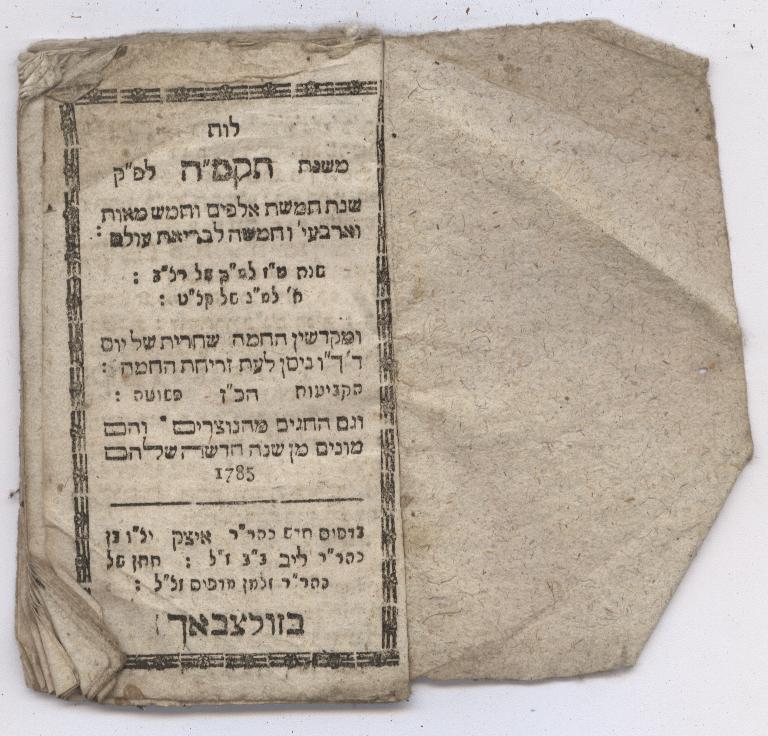 לוח
משנת תקמ"ה לפ"ק
שנת חמשת אלפים וחמש מאות
וארבעי' וחמשה לבריאת עולם :
שנת ט"ז למ"ק של רצ"ב :
א' למ"ג של קצ"ט :
ומקדשין החמה שחרית של יום
ד' כ"ו ניסן לעת זריחת החמה :
הקביעות הכ"ז פשוטה :
וגם החגים מהנוצרים והם
מונים מן שנה חדשה שלהם
1785
בדפוס חדש כהר"ר איצק יל"ו בן
כהר"ר ליב ב"ב ז"ל : חתן של
כהר"ר זלמן מדפיס זל"ל :
בזולצבאך